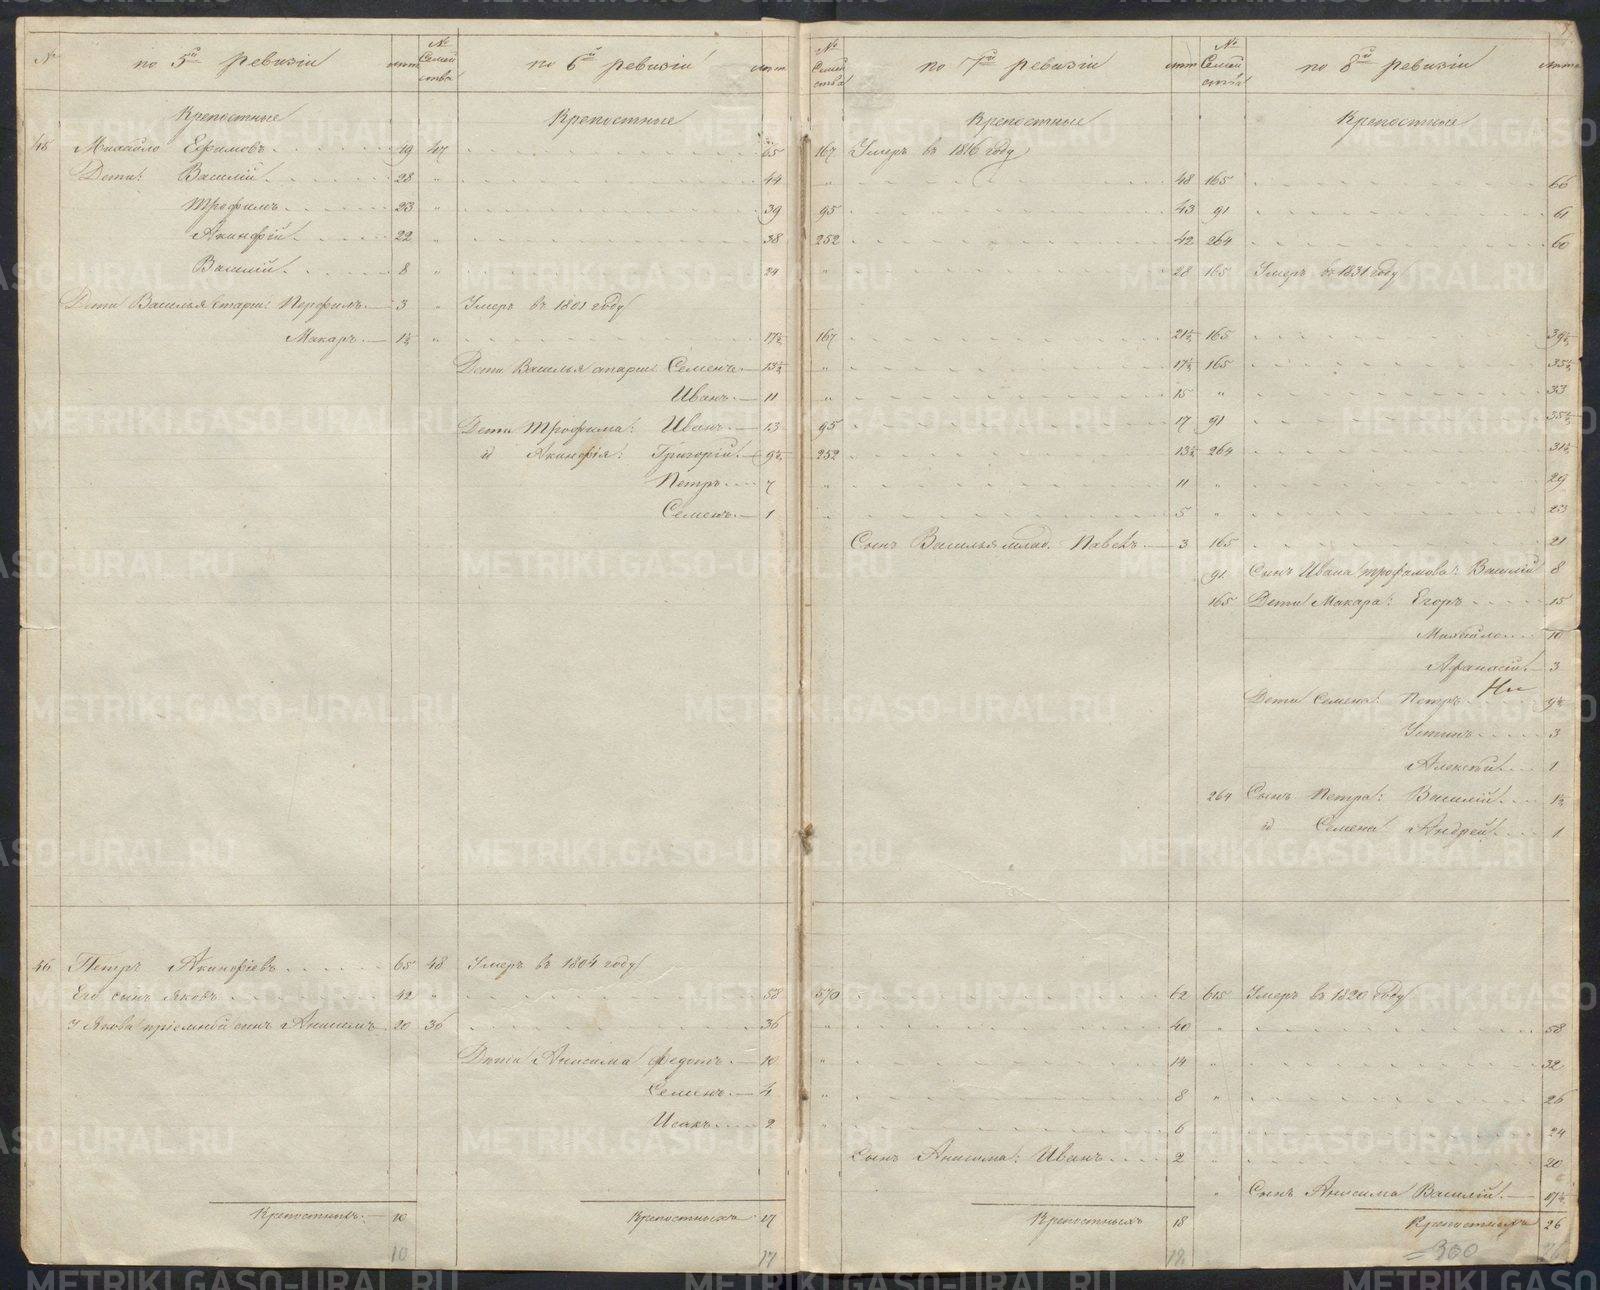 № по 5й ревизіи лѣта № Семейства по 6й ревизіи лѣта № Семейства по 7й ревизіи лѣта № Семейства по 8й ревизіи лѣта
Крепостные Крепостные Крепостные Крепостные
45 Михайло Ефимовъ 49 47 65 167 Умеръ въ 1816 году
Дети: Василій 28 " 44 " 48 165 66
Трофимъ 23 " 39 95 43 91 61
Акинфій 22 " 38 252 42 264 60
Василій 8 " 24 " 28 165 Умеръ въ 1831 году
Дети Василья старш: Перфилъ 3 " Умеръ въ 1801 году
Макаръ 1½ " 17½ 167 21½ 165 39½
Дети Василья старш: Семенъ 13½ " 17½ 165 35½
Иванъ 11 " 15 " 33
Дети Трофима: Иванъ 13 95 17 91 35½
и Акинфія: Григорій 9½ 252 13½ 264 31½
Петръ 7 " 11 " 29
Семенъ 1 " 5 " 23
Сынъ Василья млад. Павелъ 3 165 21
91 Сынъ Ивана Трофимова: Василій 8
165 Дети Макара: Егоръ 15
Михайло 10
Афанасій 3
Дети Семена: Петръ 9½
Устинъ 3
Алексѣй 1
264 Сынъ Петра: Василій 1½
и Семена Андрей 1
46 Петръ Акинфіевъ 65 48 Умеръ въ 1804 году
Его сынъ Яковъ 42 " 58 570 62 615 Умеръ въ 1820 году
У Якова пріемный сынъ Анисимъ 20 36 36 " 40 " 58
Дети Анисима Федотъ 10 " 14 " 32
Семенъ 4 " 8 " 26
Исакъ 2 " 6 24
Сынъ Анисима: Иванъ 2 20
" Сынъ Анисима Василій 17½
Крепостныхъ 10 Крепостныхъ 17 Крепостныхъ 18 Крепостныхъ 26
10 17 18 300 26
METRIKI.GASO-URAL.RU